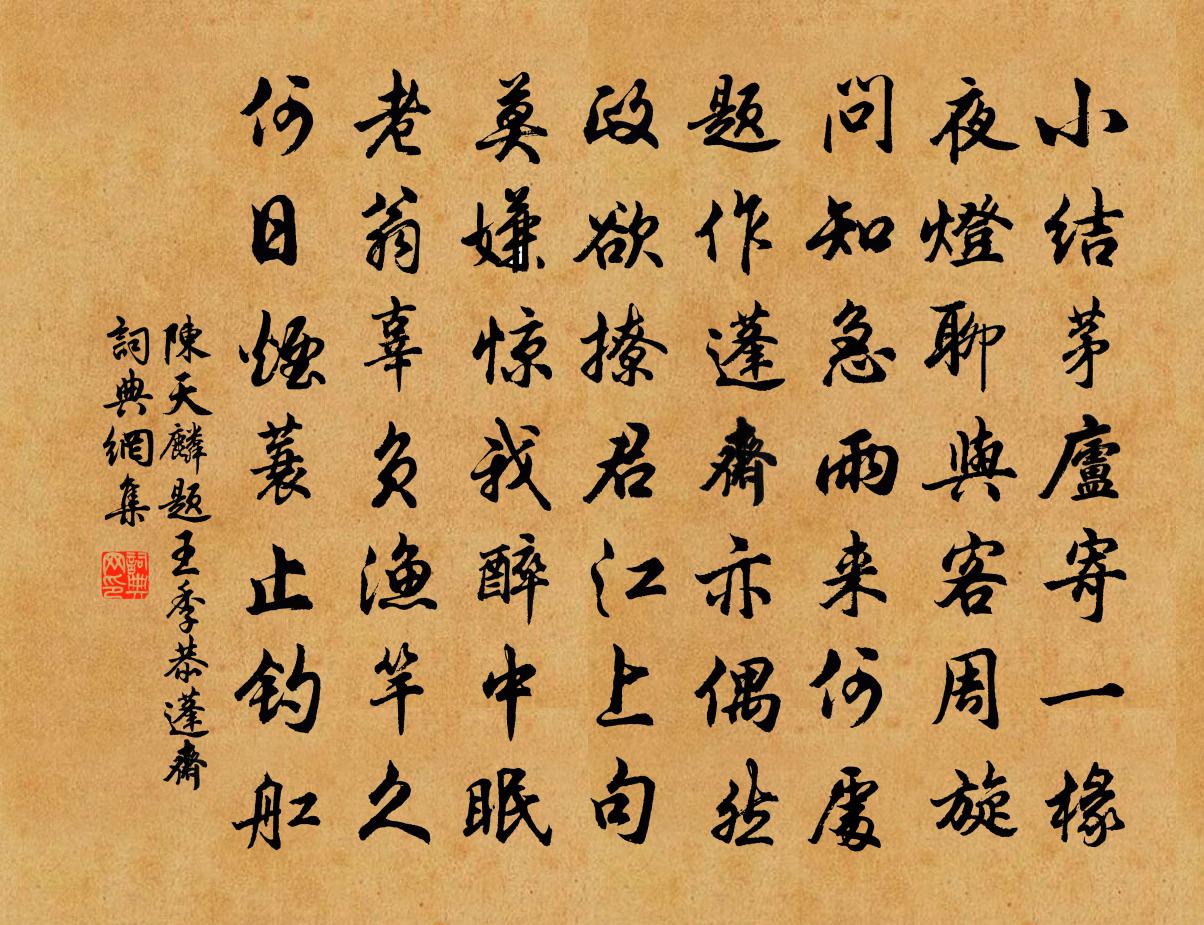 小結茅廬寄一椽
夜燈聊與客周旋
問知急雨来何處
題作蓬齋亦偶然
政欲撩君江上句
莫嫌惊我醉中眠
老翁辜負漁竿久
何日煙蓑止釣舡
陳天麟題王季恭蓬齋
詞典網集
詞典网印